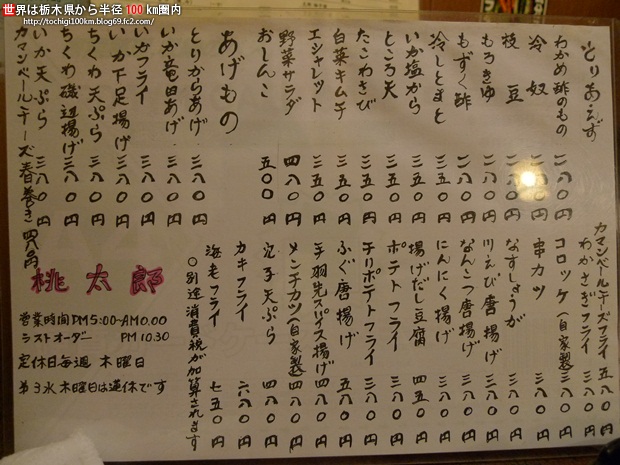 世界は栃木県から半径100km圏内
http://tochigi100km.blog69.fc2.com/
とりあえず
わかめ酢のもの 二八〇円
冷奴 二八〇円
枝豆 二八〇円
もろきゅ 二八〇円
もずく酢 二八〇円
冷しとまと 三五〇円
いか塩から 三五〇円
ところ天 三五〇円
たこわさび 三五〇円
白菜キムチ 三五〇円
エシャレット 三五〇円
野菜サラダ 四八〇円
おしんこ 五〇〇円
あげもの
とりからあげ 三八〇円
いか竜田あげ 三八〇円
いかフライ 三八〇円
いか下足揚げ 三八〇円
ちくわ天ぷら 三八〇円
ちくわ磯辺揚げ 三八〇円
いか天ぷら 三八〇円
カマンベールチーズ春巻き 四八〇円
カマンベールチーズフライ 五八〇円
わかさぎフライ 三八〇円
コロッケ(自家製) 三八〇円
串カツ 三八〇円
なすしょうが 三八〇円
川えび唐揚げ 三八〇円
なんこつ唐揚げ 三八〇円
にんにく揚げ 三八〇円
揚げだし豆腐 四五〇円
ポテトフライ 三八〇円
チリポテトフライ 三八〇円
ふぐ唐揚げ 五八〇円
手羽先スパイス揚げ 四八〇円
メンチカツ(自家製) 四八〇円
穴子天ぷら 四八〇円
カキフライ 六八〇円
海老フライ 七五〇円
〇別途消費税が加算されます
桃太郎
営業時間PM5:00-AM0.00
ラストオーダー PM10.30
定休日毎週 木曜日
第3水木曜日は連休です